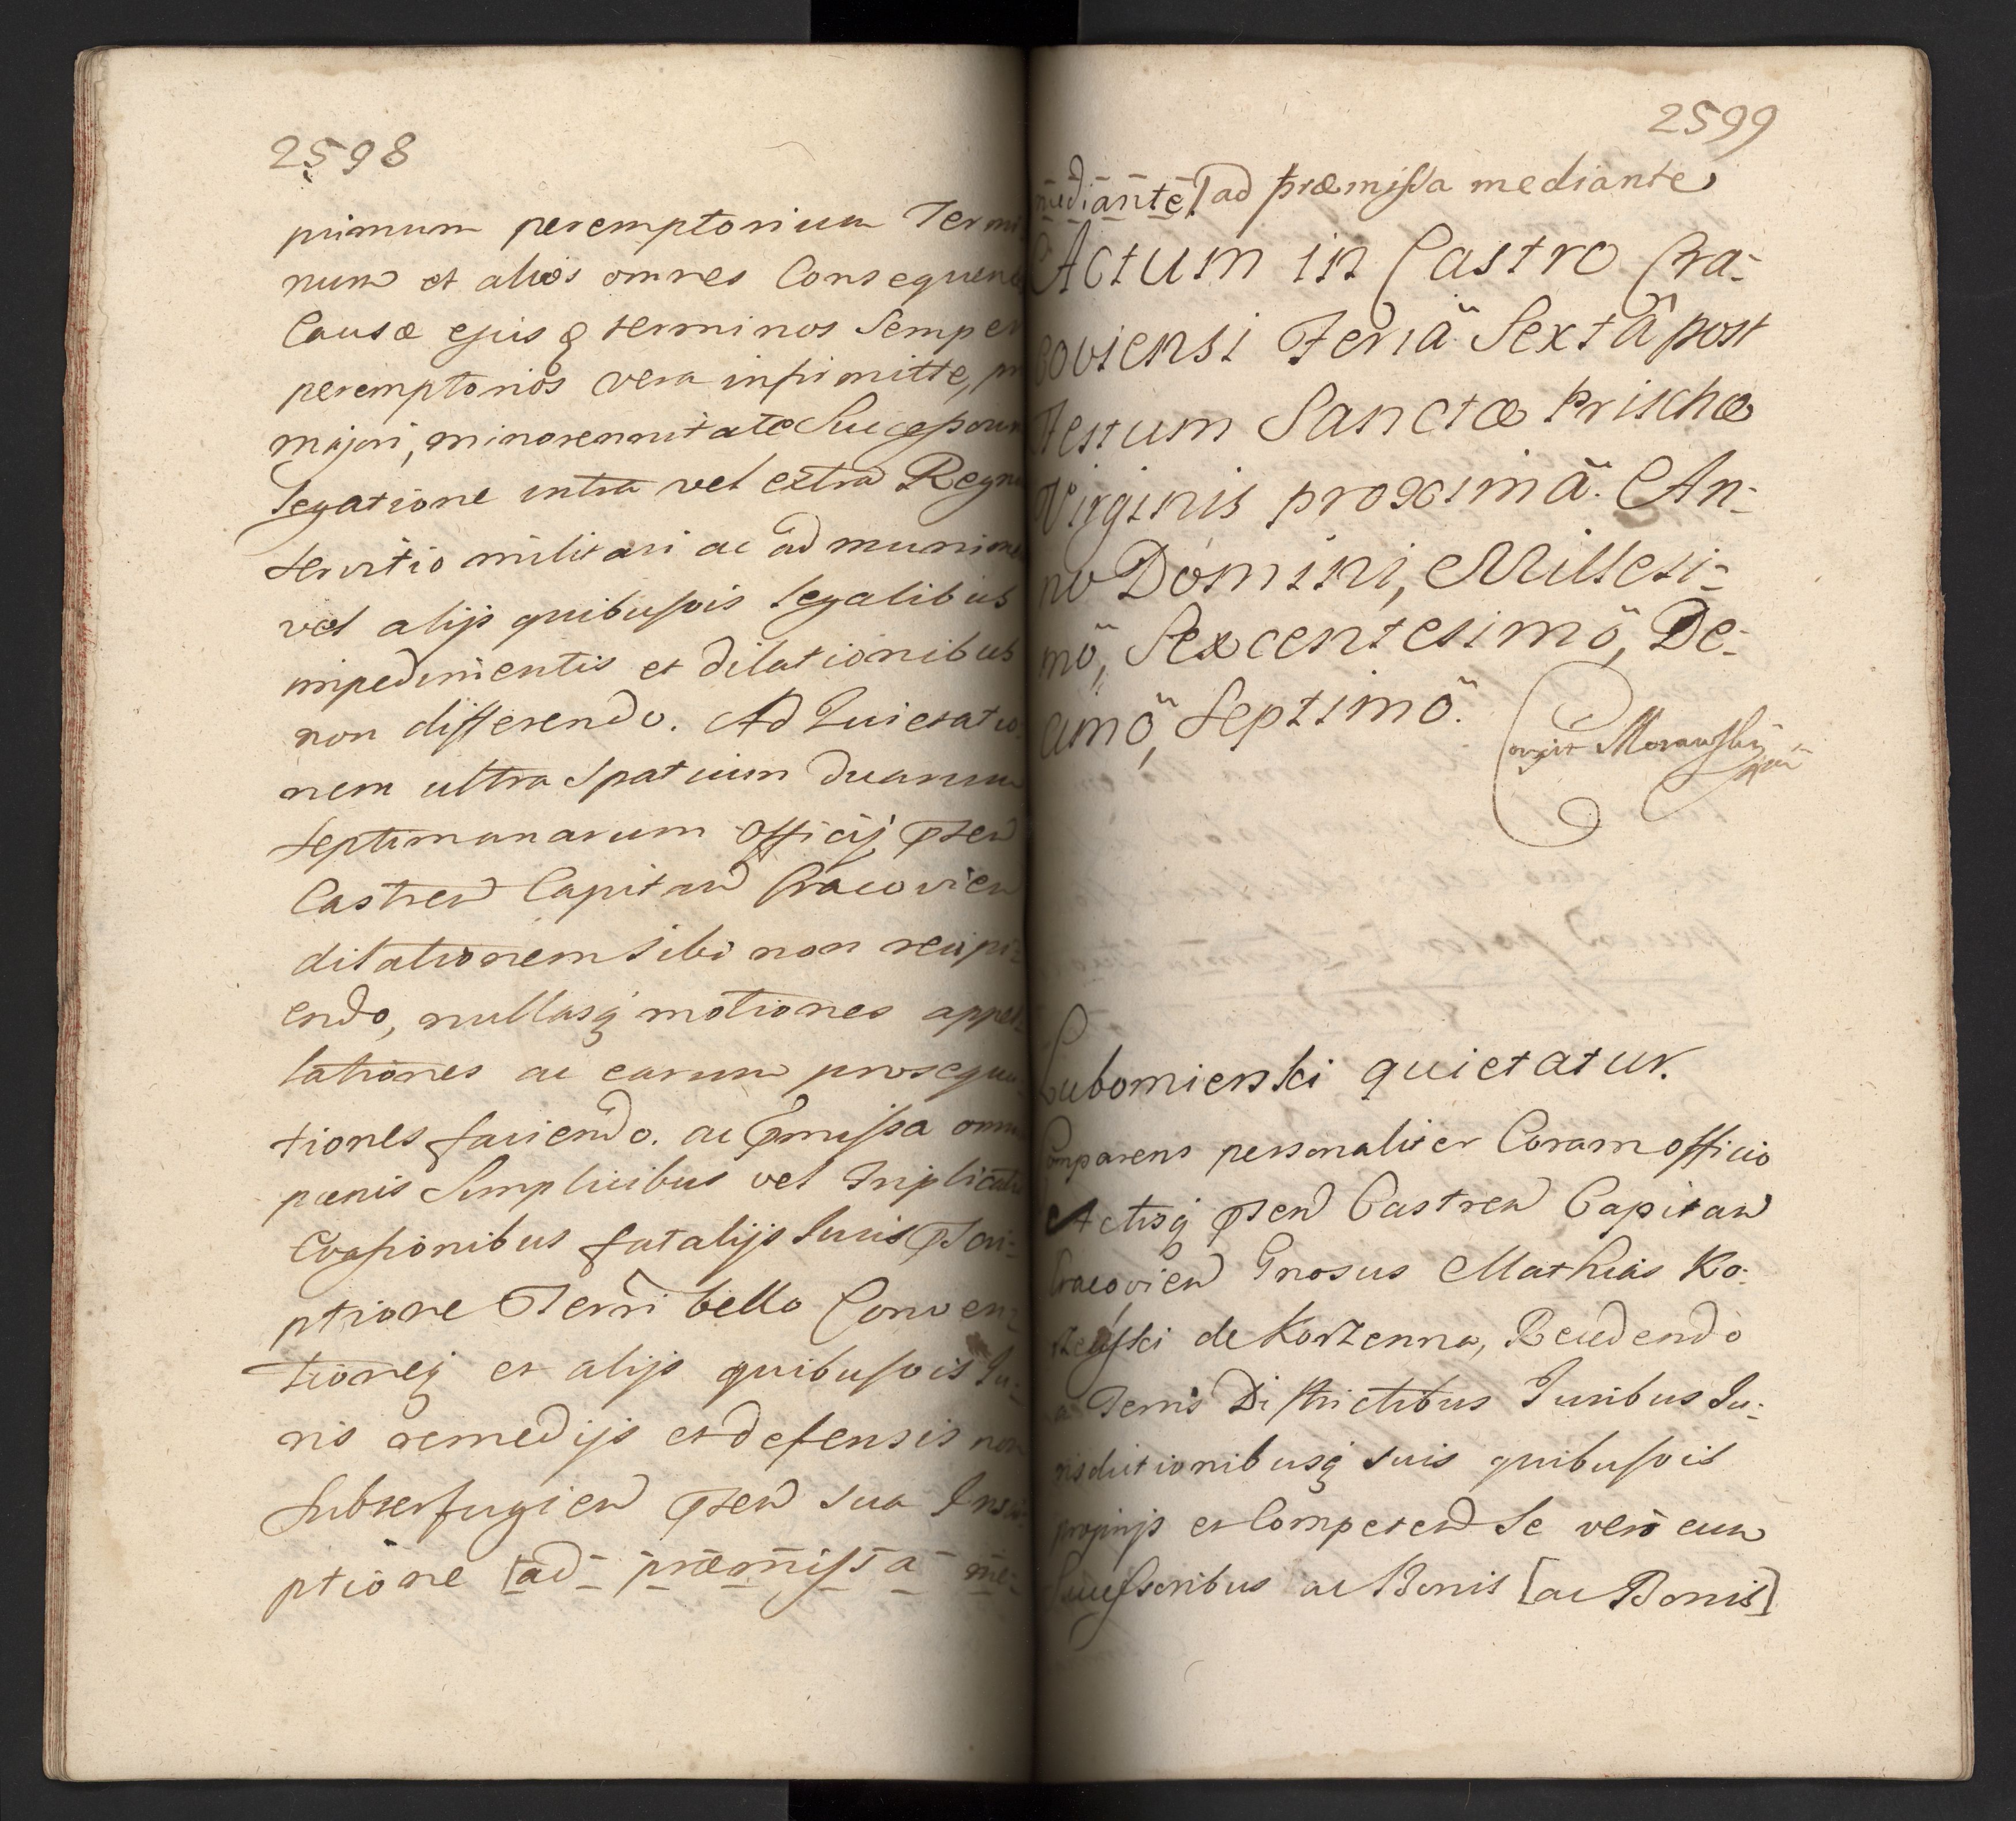 2598
primum peremptorium Termi
num et alios omnes Consequen
Causæ ejus q terminos Semper
peremptorios vera infirmitte,
majori, minorennitate Successorum
legatione intra vel extra Regnu
servitio militari ac ad munime
vel alijs quibusvis legalibus
impedimentis et dilationibus
non differendo. Ad Quietatio
nem ultra Spatium duarum
septimanarum Officij pñtem
Castren Capitan Cracovien
dilationem sibi non recipi-
endo, nullasq motiones appel-
lationes ac earum prosequu-
tiones faciendo. ac pmissa omn
pænis Simplicibus vel Triplicat
Evasionibus fatalijs Juris pscri-
ptione Terrñ bello Conven-
tioneq et alijs quibusvis Ju-
ris remedijs et defensis non
Subterfugien pñten sua Inscri-
ptione [ad præmissa me-
2599
mediante] ad præmissa mediante
Actum in Castro Cra-
coviensi Feriâ Sextâ post
Festum Sanctæ Prischæ
Virginis proximâ. An-
no Domini, Millesi-
mô, Sexcentesimô, De-
cimô, Septimô.
Corexit Morawski mp
Lubomierski quietatur.
Comparens personaliter Coram officio
Actisq pñten Castren Capitan
Cracovien Gnosus Mathias Ko-
rzeński de Korzenna, Recedendo
a Terris Districtibus Juribus Ju-
risdictionibusq suis quibusvis
proprijs et Competen Se vero cum
Successoribus ac Bonis [ac Bonis]